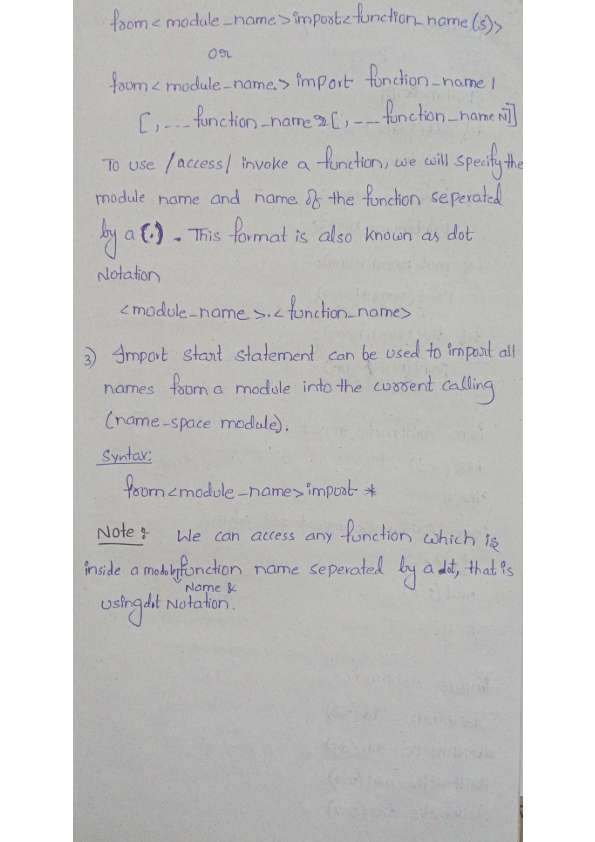 from < module_name > import < function_name(s) >
or
from < module_name > import function_name 1
[, --- function_name 2 [, --- function_name N]]
To use / access / invoke a function, we will specify the
module name and name of the function seperated
by a (.) . This format is also known as dot
Notation
< module_name > . < function_name >
3) Import Start statement can be used to import all
names from a module into the current calling
(name-space module).
Syntax:
from < module_name > import *
Note : We can access any function which is
inside a module function name seperated by a dot, that is
Name &
using dot Notation.